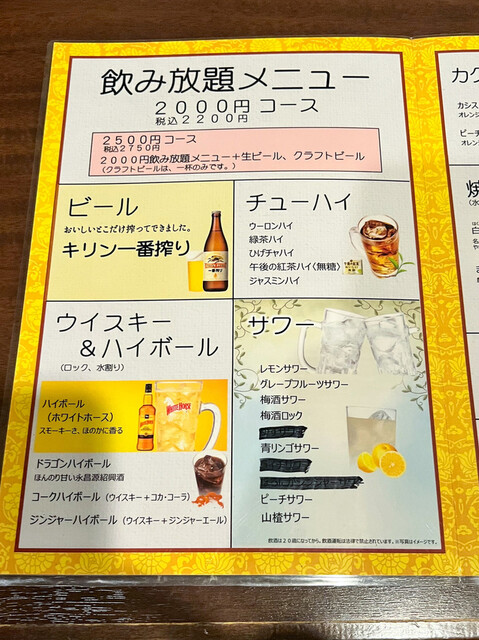 飲み放題メニュー
2000円コース
税込2200円
2500円コース
税込2750円
2000円飲み放題メニュー+生ビール、クラフトビール
(クラフトビールは、一杯のみです。)
ビール
おいしいとこだけ搾ってできました。
キリン一番搾り
チューハイ
ウーロンハイ
緑茶ハイ
ひげチャハイ
午後の紅茶ハイ(無糖)
ジャスミンハイ
ウイスキー
&ハイボール
(ロック、水割り)
ハイボール
(ホワイトホース)
スモーキーさ、ほのかに香る
WHITE HORSE
ドラゴンハイボール
ほんのり甘い永昌源紹興酒
コークハイボール(ウイスキー+コカ・コーラ)
ジンジャーハイボール(ウイスキー+ジンジャーエール)
サワー
レモンサワー
グレープフルーツサワー
梅酒サワー
梅酒ロック
青リンゴサワー
ピーチサワー
山楂サワー
飲酒は20歳になってから。飲酒運転は法律で禁止されています。※写真はイメージです。
カク
カシス
オレンジ
ピーチ
オレン
焼
(水